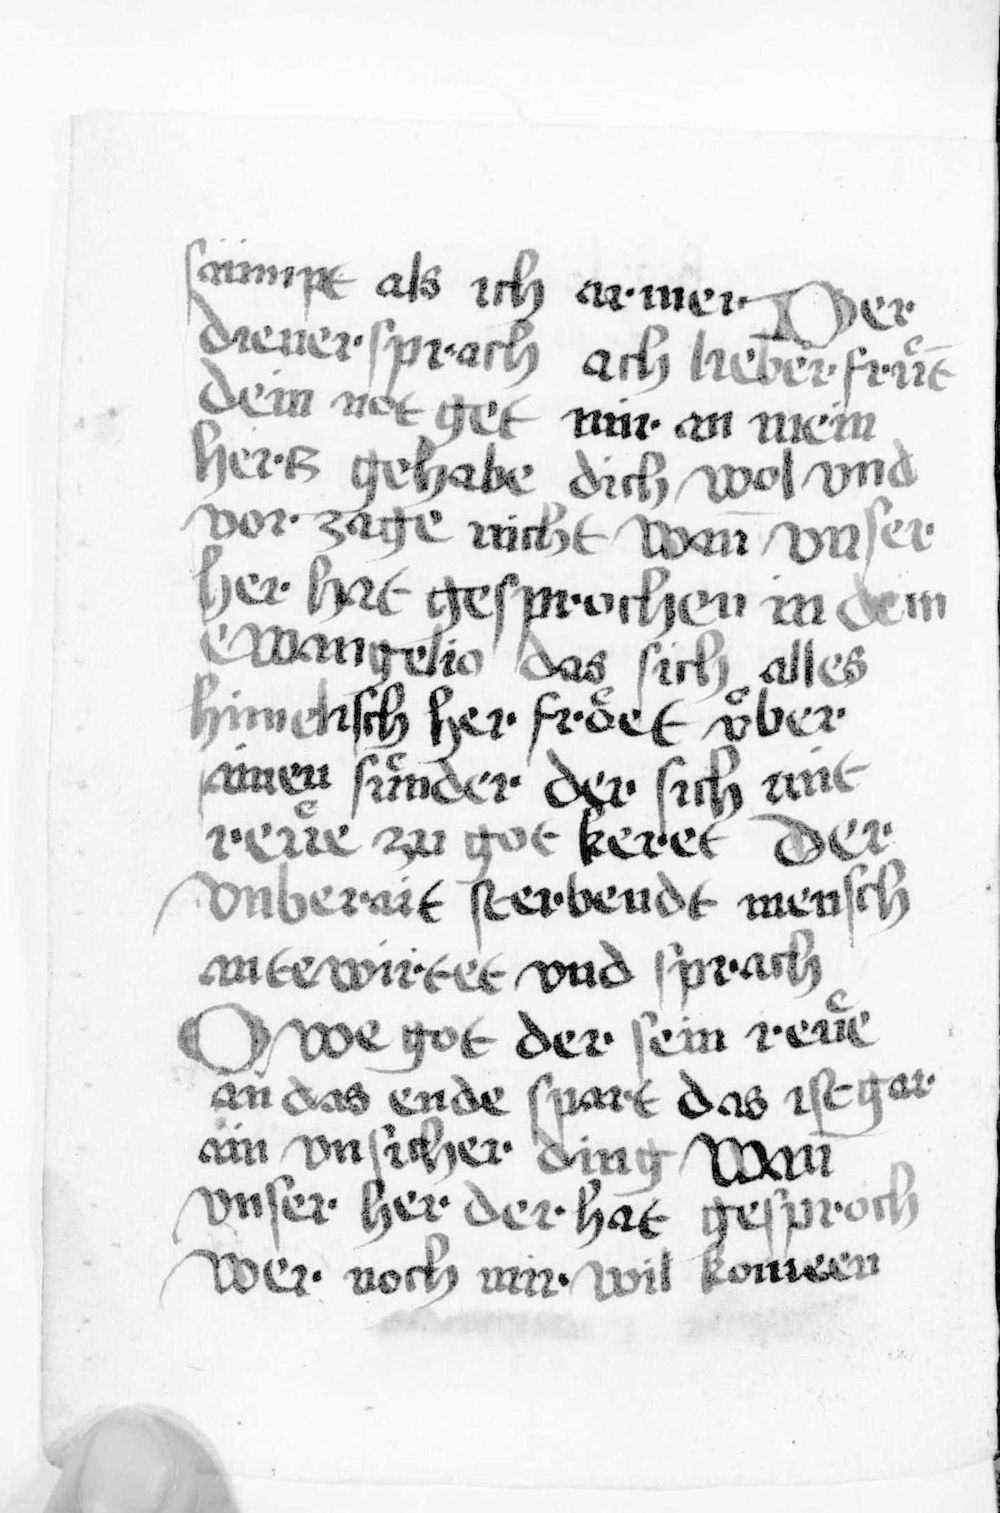 saümpt als ich armer Der
diener sprach ach lieber fruͤ̄t
dein not get mir an mein
hercz gehabe dich wol vnd
vor zage nicht wan̄ vnser
her hat gesprochen in dem
ewangelio das sich alles
himelisch her froͤet vͤber
ainen suͤnder der sich mit
reuͤe zu got keret Der
vnberait sterbendt mensch
antewürtet vnd sprach
O we got der sein reuͤe
an das ende spart das ist gar
ain vnsicher ding wan̄
vnser her der hat gesproch
wer noch mir wil komeen